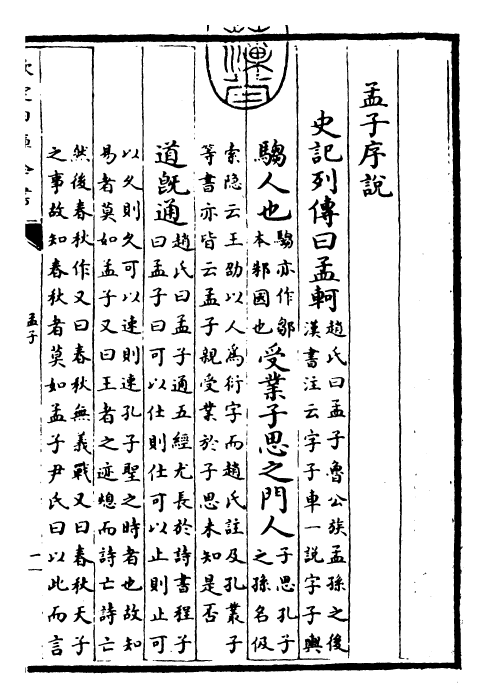 孟子序說
史記列傳曰孟軻趙氏曰孟子魯公族孟孫之後
漢書注云字子車一說字子輿
騶人也騶亦作鄒
本邾國也受業子思之門人子思孔子
之孫名伋
索隱云王劭以人爲衍字而趙氏註及孔叢子
等書亦皆云孟子親受業於子思未知是否
道旣通趙氏曰孟子通五經尤長於詩書程子
曰孟子曰可以仕則仕可以止則止可
以久則久可以速則速孔子聖之時者也故知
易者莫如孟子又曰王者之迹熄而詩亡詩亡
然後春秋作又曰春秋無義戰又曰春秋天子
之事故知春秋者莫如孟子尹氏曰以此而言
孟子